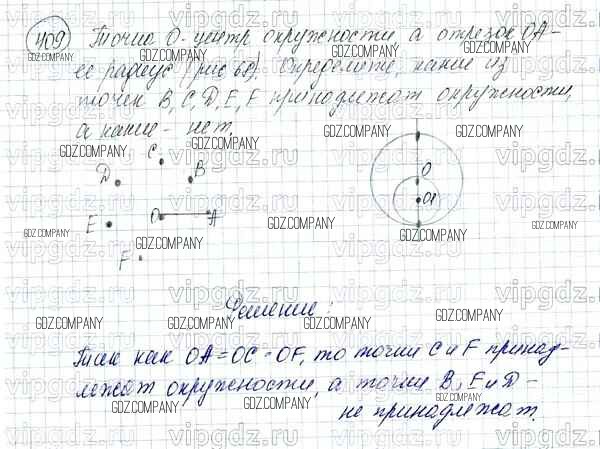 409 Точка O - центр окружности, а отрезок OA -
её радиус (рис 68). Определите, какие из
точек B, C, D, E, F принадлежат окружности,
а какие - нет.
C
D B
O
E O A
O1
F
Решение:
Так как OA = OC = OF, то точки C и F принад-
лежат окружности, а точки B, E и D -
не принадлежат.
GDZ.COMPANY
vipgdz.ru